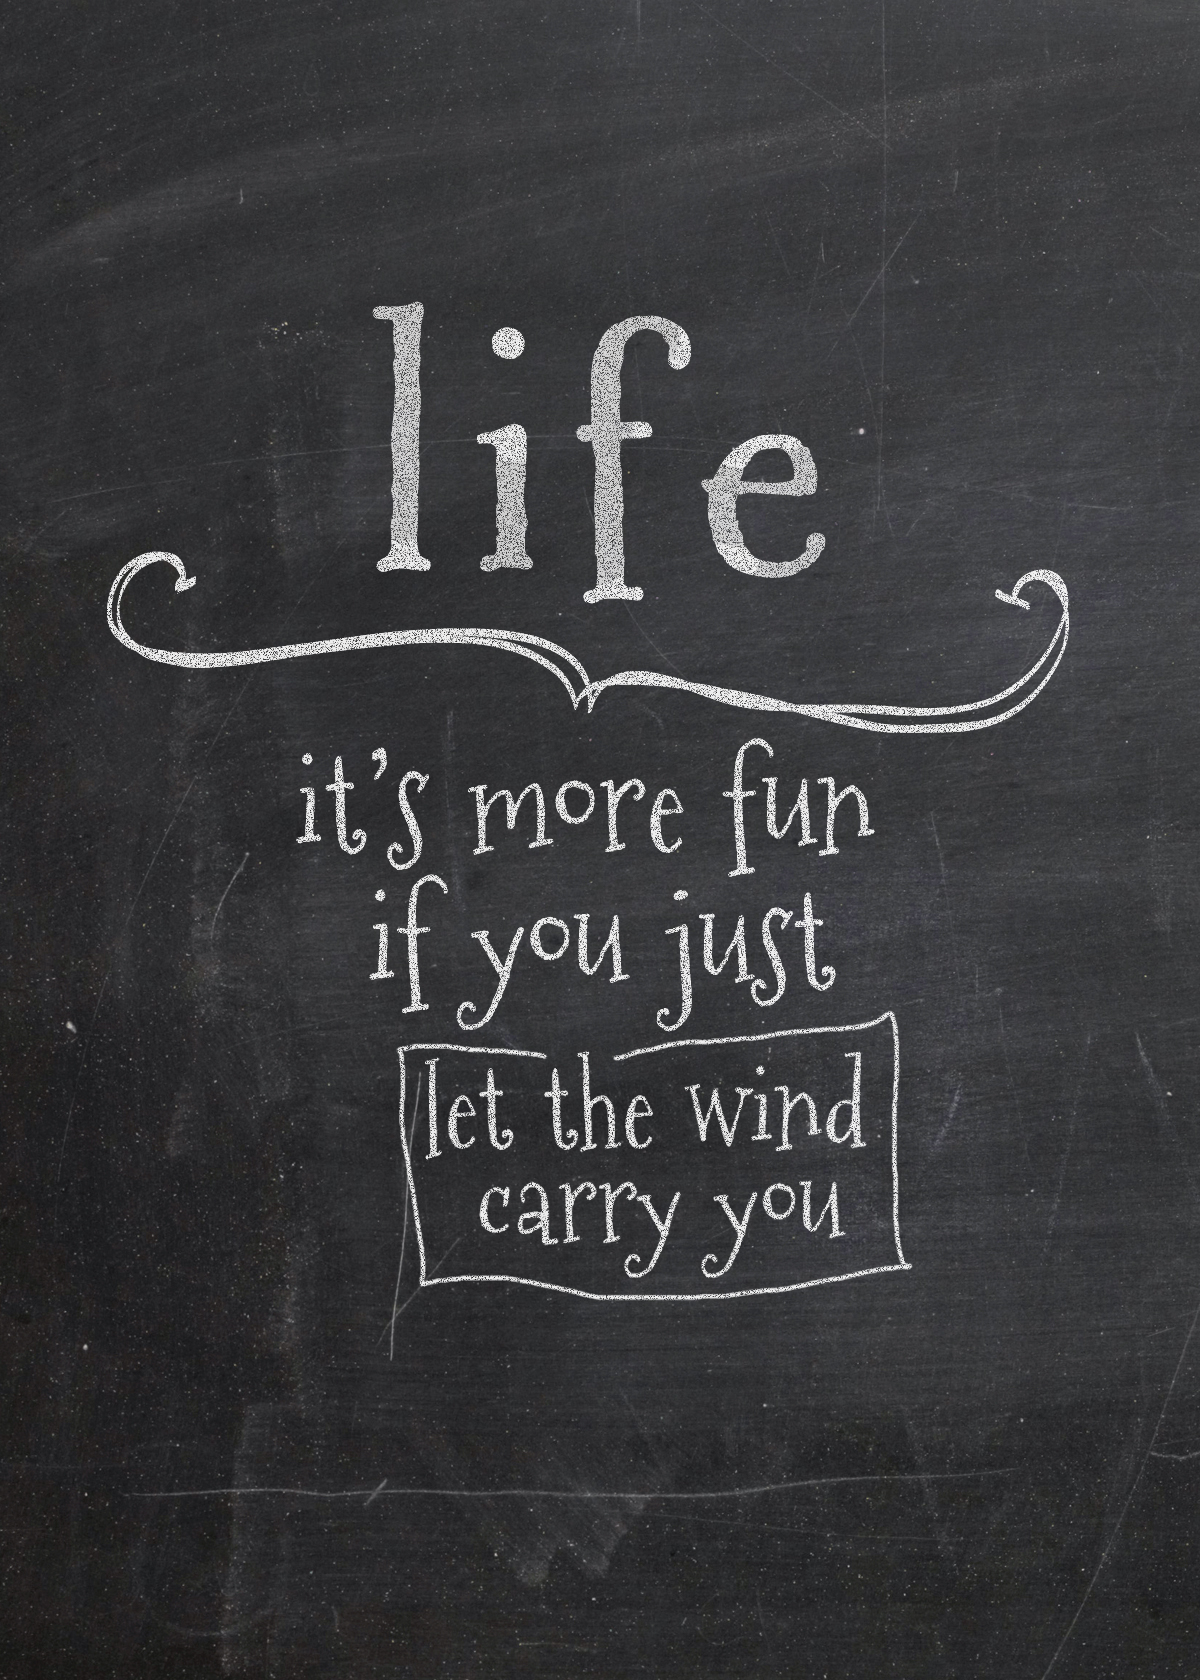 life
it's more fun
if you just
let the wind
carry you